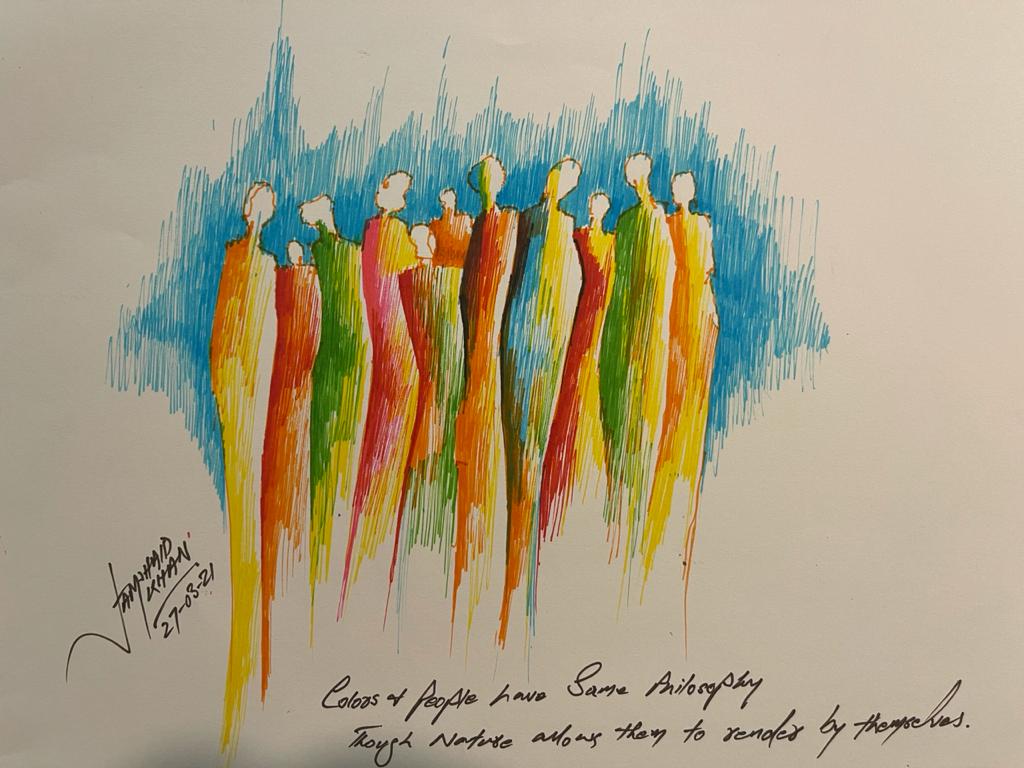 JAMSHAID
KHAN
27-03-21
Colors & People have Same Philosophy
Though Nature allows them to render by themselves.